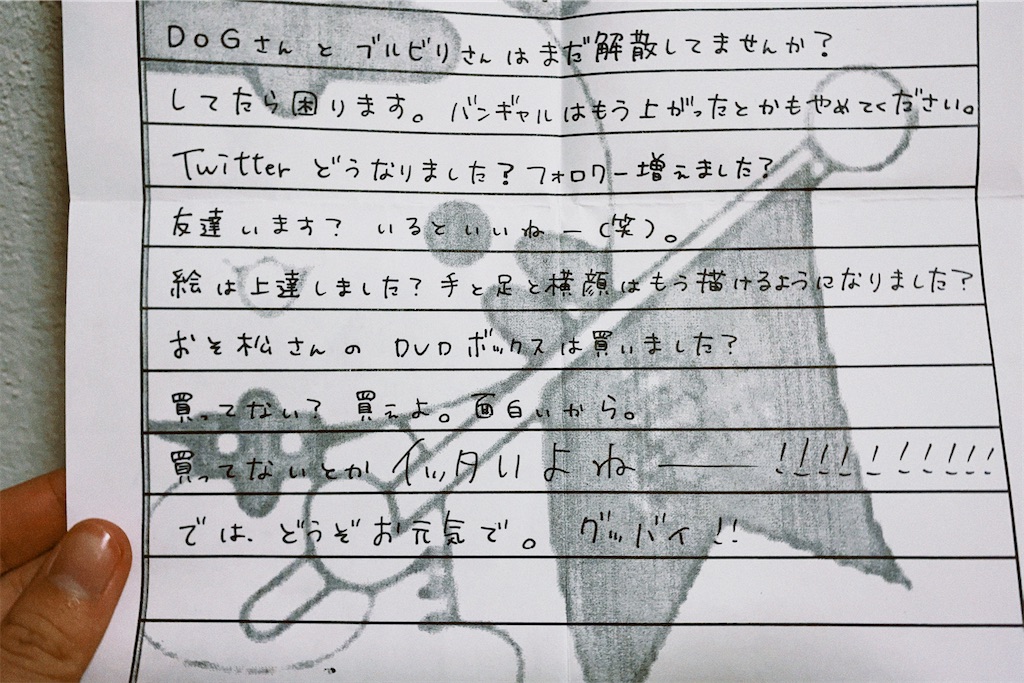 DoGさんとブルビリさんはまだ解散してませんか?
してたら困ります。バンギャルはもう上がったとかもやめてください。
Twitterどうなりました?フォロワー増えました?
友達います? いるといいねー(笑)。
絵は上達しました?手と足と横顔はもう描けるようになりました?
おそ松さんの DVDボックスは買いました?
買ってない? 買えよ。面白いから。
買ってないとかイッタいよね――!!!!!!!!!!
では、どうぞお元気で。 グッバイ!!